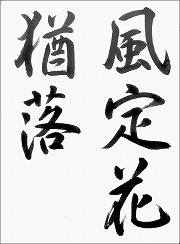 風定花
猶落